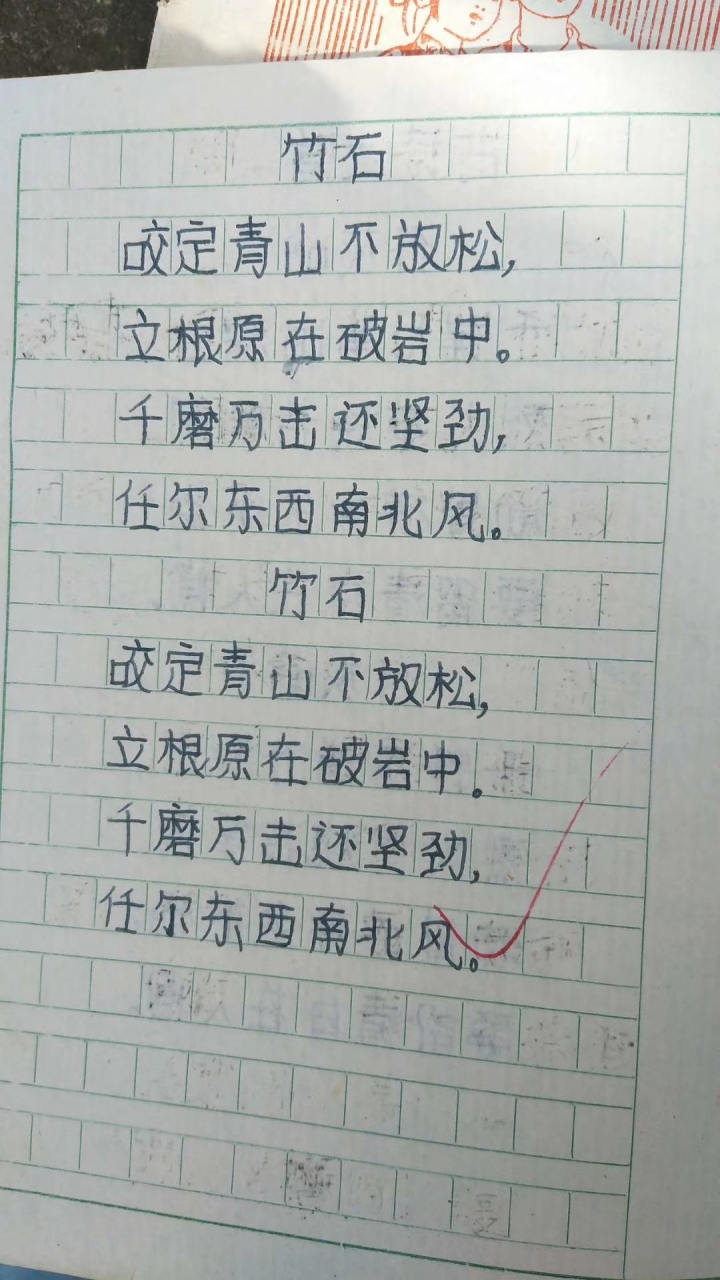 竹石
咬定青山不放松，
立根原在破岩中。
千磨万击还坚劲，
任尔东西南北风。
竹石
咬定青山不放松，
立根原在破岩中。
千磨万击还坚劲，
任尔东西南北风。